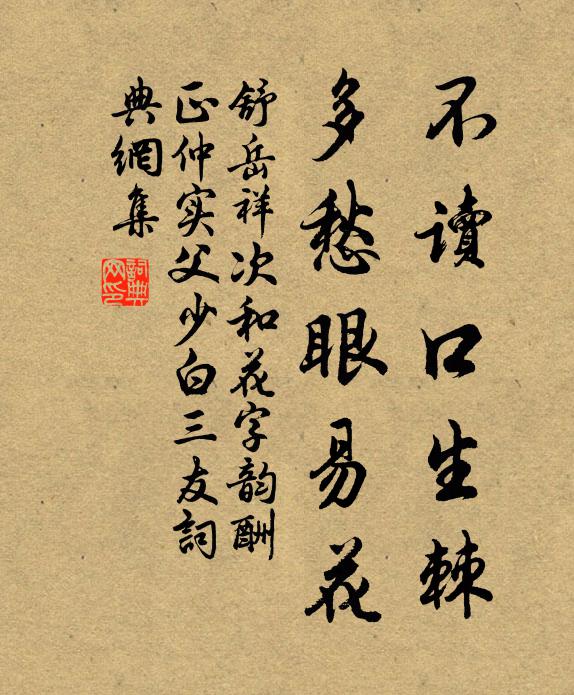 不讀口生棘
多愁眼易花
舒岳祥次和花字韵酬
正仲实父少白三友詞
典網集
詞典网印